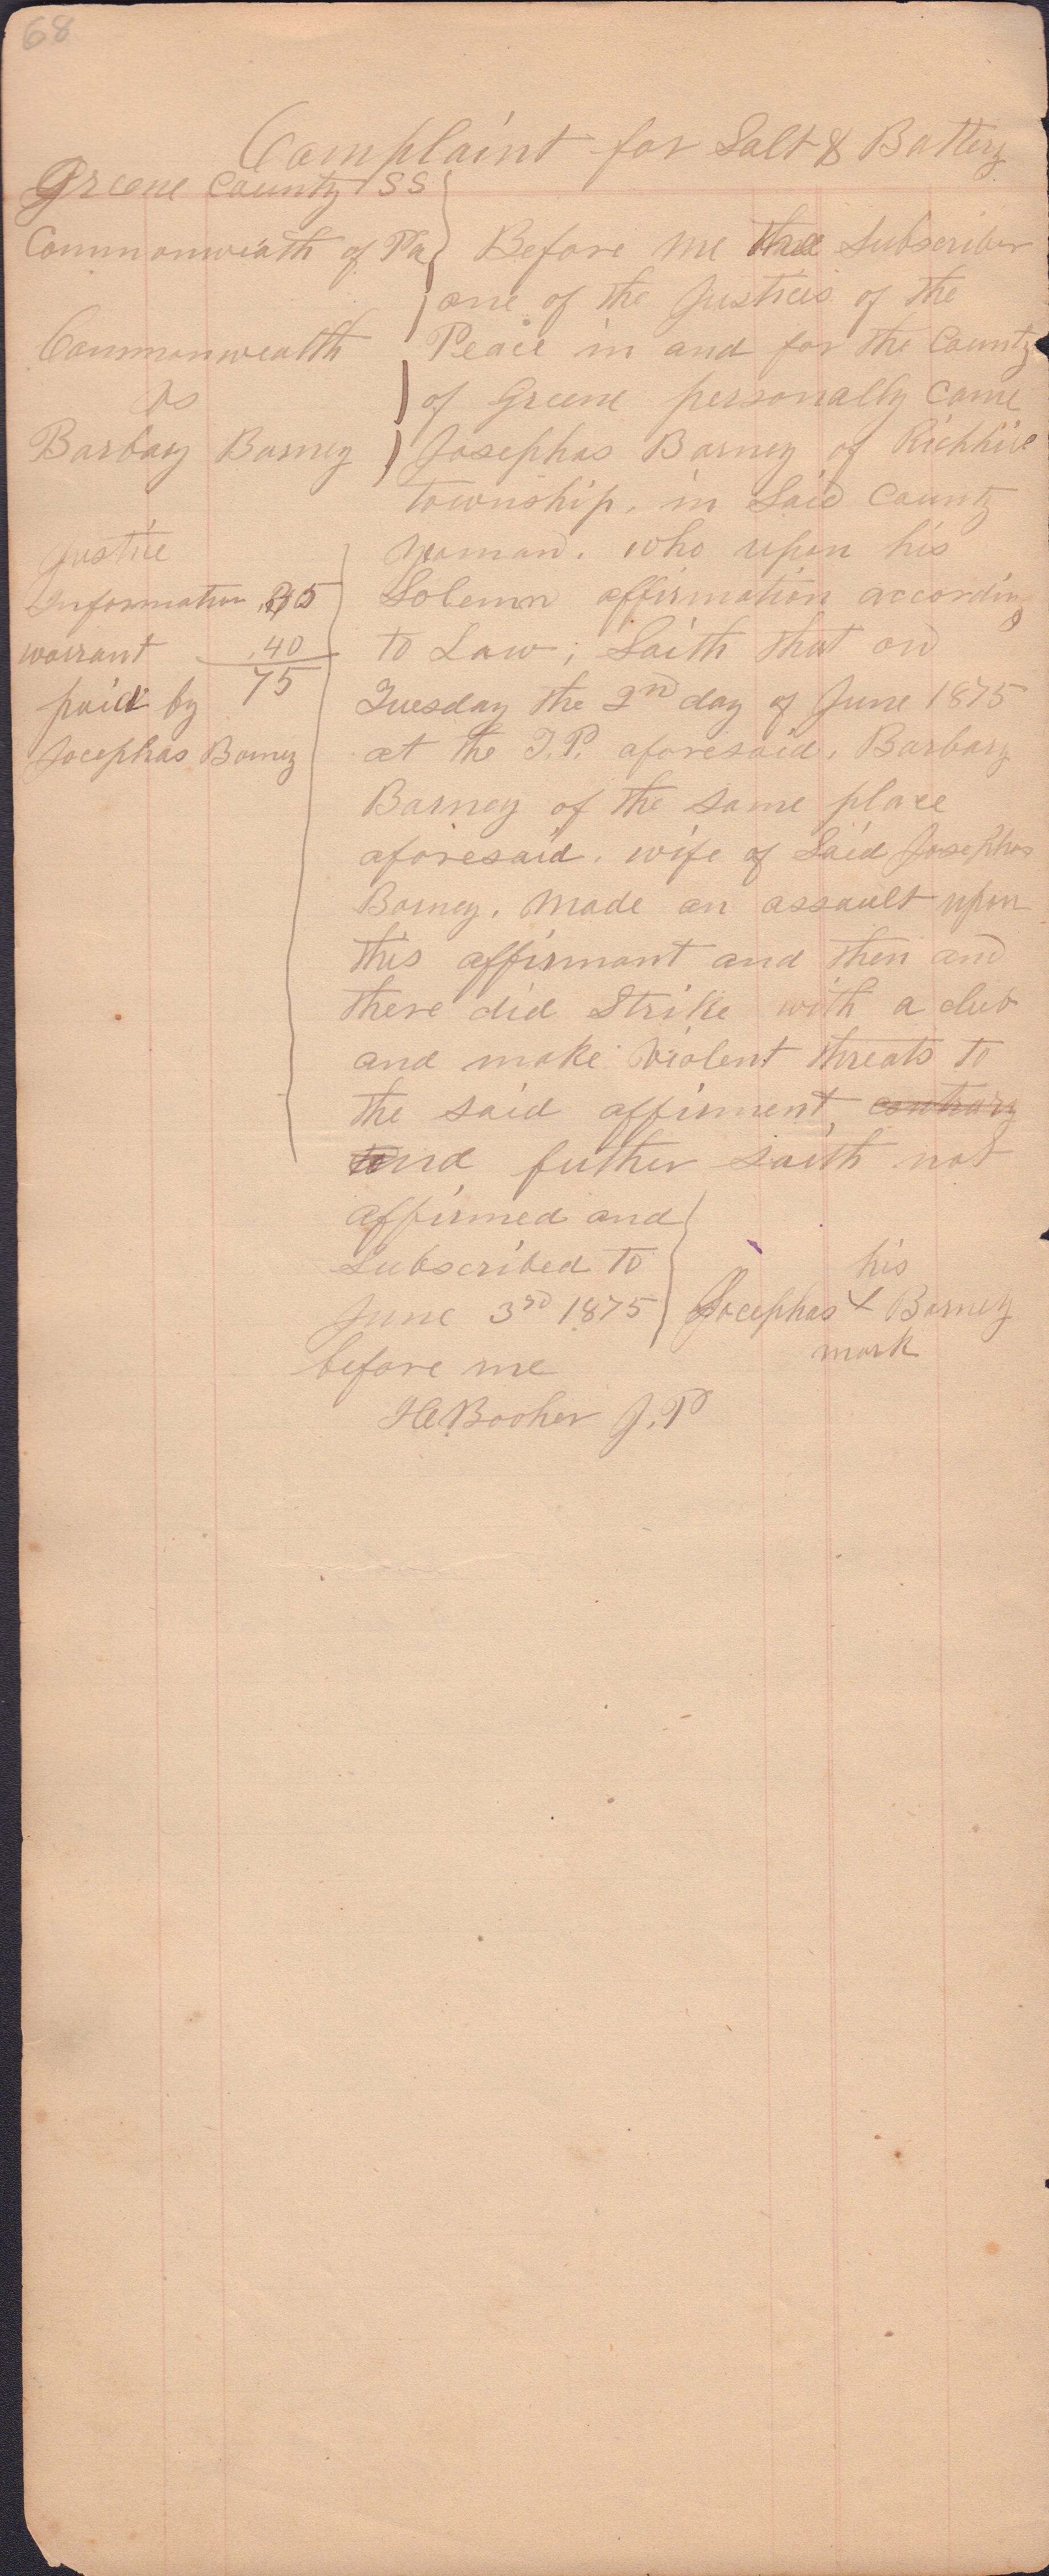 68
Complaint for Salt & Battery
Greene County SS
Commonweath of Pa
Commonwealth
vs
Barbary Barney
Justice
Information .35
warrant .40
75
paid by
Jocephas Barney
Before me the Subscriber
one of the Justices of the
Peace in and for the County
of Greene personally Came
Josephas Barney of Richhill
township, in Said County
yoman. who upon his
Solemn affirmation according
to Law; Saith that on
Tuesday the 2nd day of June 1875
at the T.P. aforesaid, Barbary
Barney of the same place
aforesaid, wife of Said Josephas
Barney, made an assault upon
this affirmant and then and
there did Strike with a club
and make violent threats to
the said affirment, contrary
and futher saith not
affirmed and
Subscribed to
June 3rd 1875
before me
his
Jocephas X Barney
mark
Booher J.P